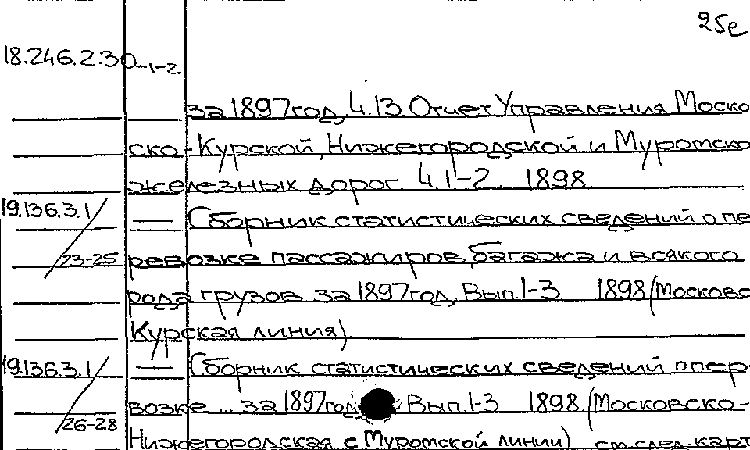 25е
18.246.2.30-1-2
за 1897 год, Ч. 1.3 Отчет Управления Моско
ско-Курской, Нижегородской и Муромско
железных дорог Ч. 1-2. 1898
19.136.3.1/23-25 — Сборник статистических сведений о пе
ревозке пассажиров, багажа и всякого
рода грузов за 1897 год, Вып. 1-3 1898 (Московс
Курская линия)
19.136.3.1/26-28 — Сборник статистических сведений о пер
возке ... за 1897 год Вып. 1-3 1898. (Московско-
Нижегородская с Муромской линии) см. след. карт